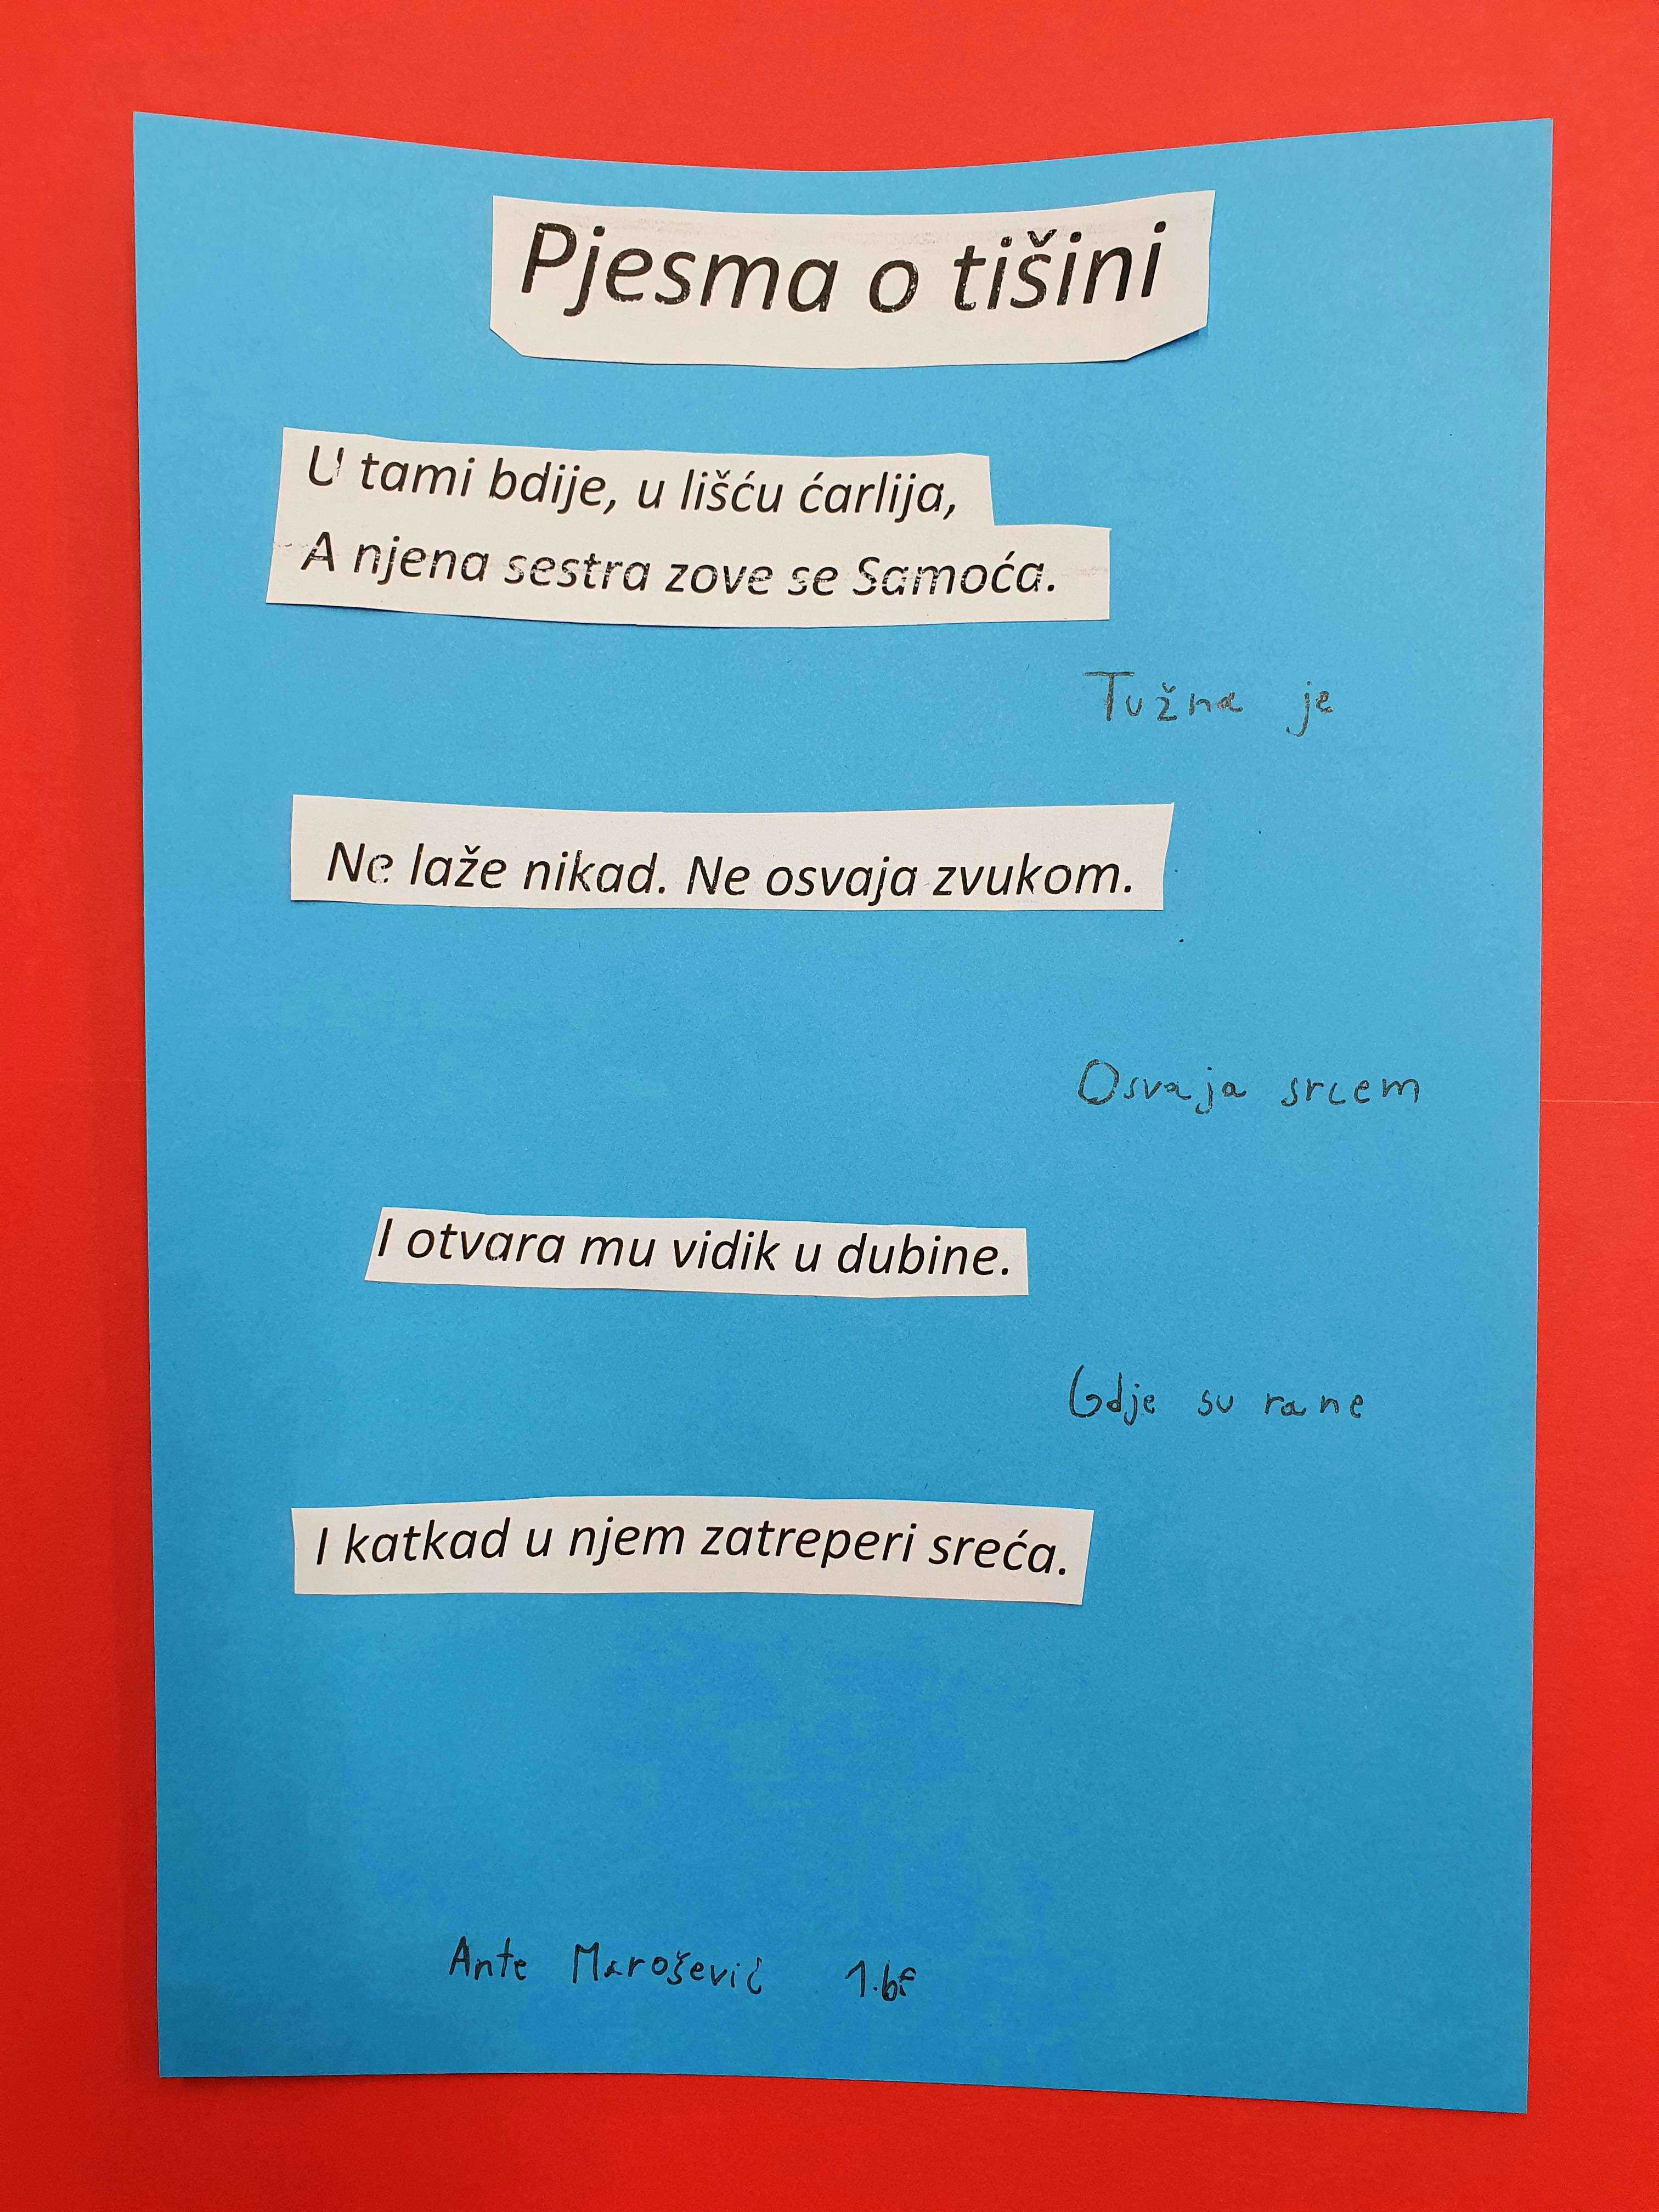 Pjesma o tišini
U tami bdije, u lišću ćarlija,
A njena sestra zove se Samoća.
Tužna je
Ne laže nikad. Ne osvaja zvukom.
Osvaja srcem
I otvara mu vidik u dubine.
Gdje su rane
I katkad u njem zatreperi sreća.
Ante Marošević 1.bf